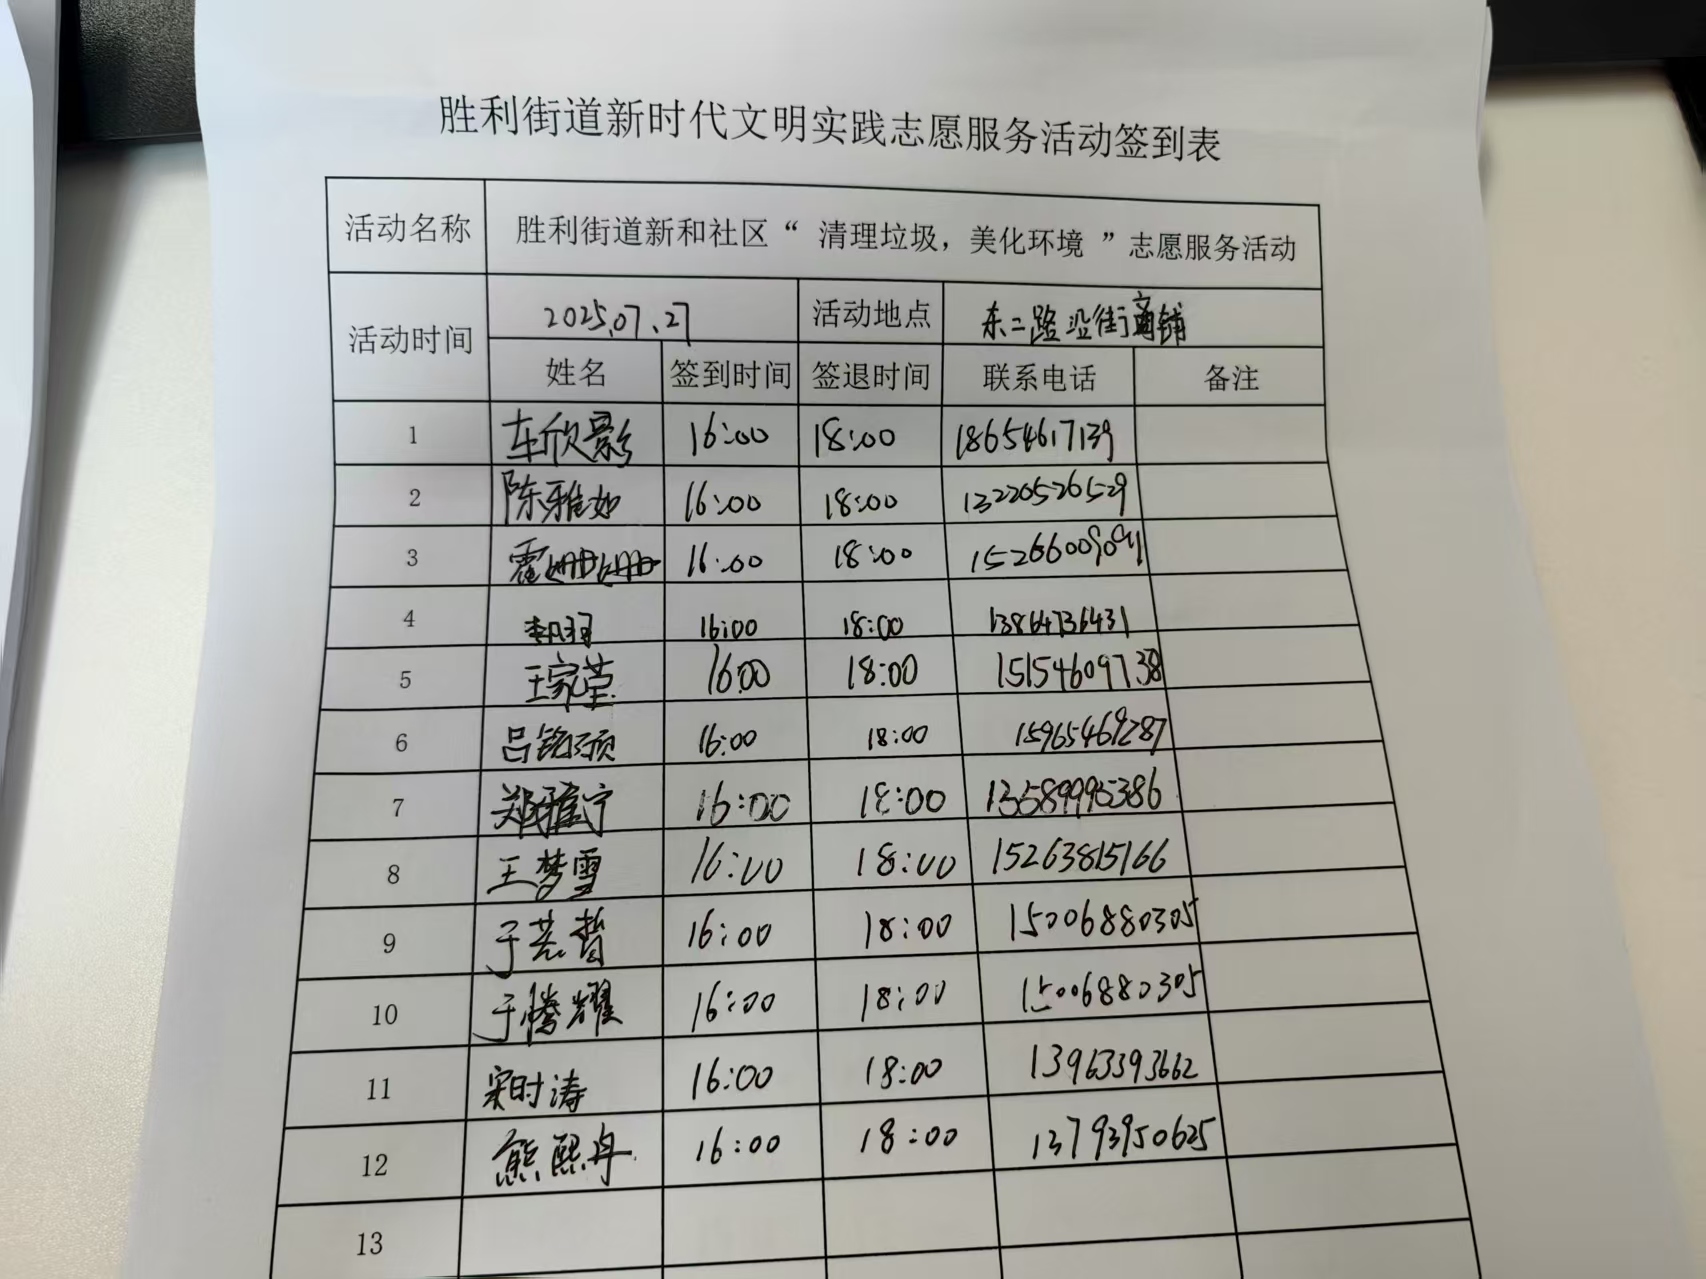 胜利街道新时代文明实践志愿服务活动签到表
活动名称 胜利街道新和社区“ 清理垃圾，美化环境 ”志愿服务活动
活动时间 2025.07.27 活动地点 东二路沿街商铺
姓名 签到时间 签退时间 联系电话 备注
1 车欣影 16:00 18:00 18654617139
2 陈雅如 16:00 18:00 13220526529
3 霍姗姗 16:00 18:00
4 16:00 18:00 13864736431
5 王家莹 16:00 18:00 15154609738
6 吕铭颀 16:00 18:00 15965469287
7 郑雅宁 16:00 18:00 13589995386
8 王梦雪 16:00 18:00 15263815166
9 于芸哲 16:00 18:00 15006880305
10 于腾耀 16:00 18:00 15006880305
11 宋时涛 16:00 18:00 13963393662
12 熊熙冉 16:00 18:00 13793950625
13